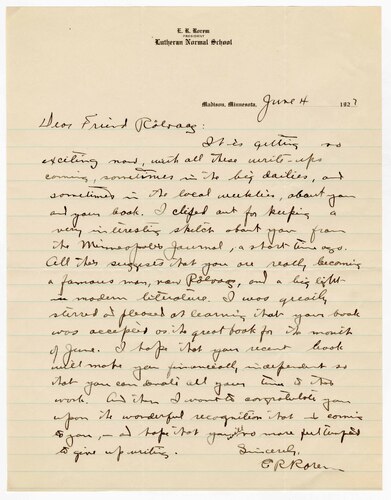 E. R. Rorem
PRESIDENT
Lutheran Normal School
Madison, Minnesota, June 4 1927
Dear Friend Rölvaag:
It is getting so
exciting now, with all these write-ups
coming, sometimes in the big dailies, and
sometimes in the local weeklies, about you
and your book. I clipped out for keeping a
very interesting sketch about you, from
the Minneapolis Journal, a short time ago.
All this suggests that you are really becoming
a famous man, now Rölvaag, and a big light
in modern literature. I was greatly
stirred and pleased at learning that your book
was accepted as the great book for the month
of June. I hope that your recent book
will make you financially independent so
that you can donate all your time to this
work. And then I want to congratulate you
upon the wonderful recognition that is coming
to you, — and hope that you no more put tempted
to give up writing. Sincerely,
E R Rorem